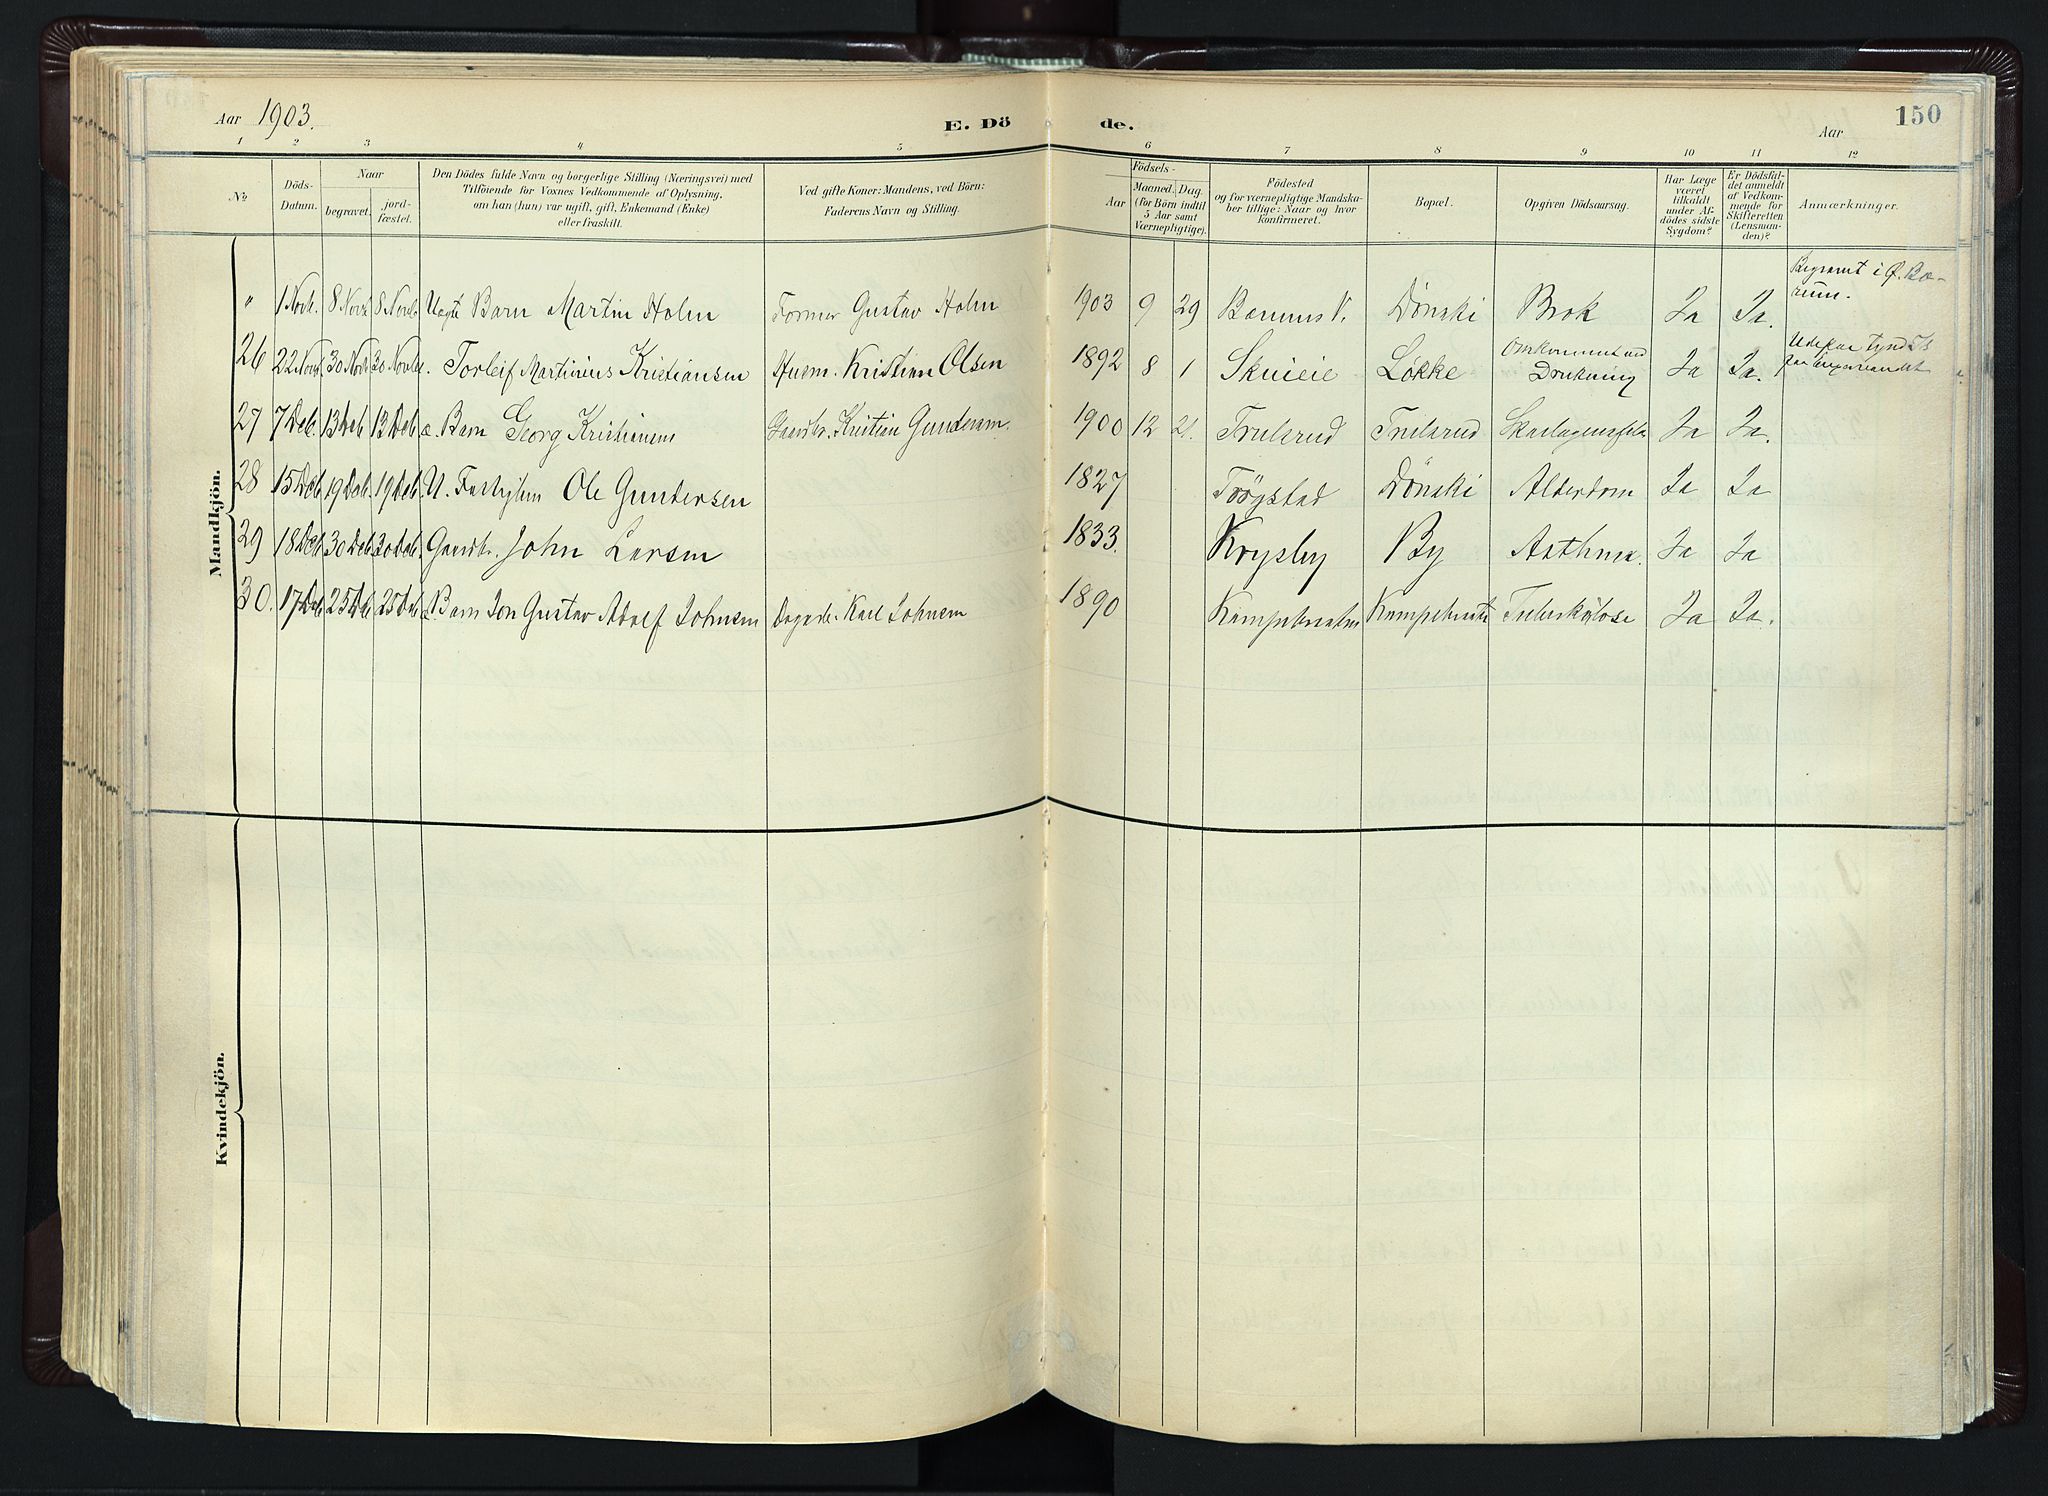 Aar 1903.
E. Dö de.
150
Aar
1 2 3 4 5 6 7 8 9 10 11 12
No.
Döds-
Datum.
Naar
begravet.
jord-
fæstet.
Den Dödes fulde Navn og borgerlige Stilling (Næringsvei) med
Tilföiende for Voxnes Vedkommende af Oplysning,
om han (hun) var ugift, gift, Enkemand (Enke)
eller fraskilt.
Ved gifte Koner: Mandens, ved Börn:
Faderens Navn og Stilling.
Födsels-
Aar
Maaned. Dag.
(for Börn indtil
5 Aar samt
Værnepligtige).
Födested
og for værnepligtige Mandska-
ber tillige: Naar og hvor
konfirmeret.
Bopæl.
Opgiven Dödsaarsag.
Har Læge
været
tilkaldt
under Af-
dödes sidste
Sygdom?
Er Dödsfal-
det anmeldt
af Vedkom-
mende for
Skifteretten
(Lensman-
den)?
Anmærkninger.
Mandkjön.
" 1 Novb. 8 Novb 8 Novb Uægte Barn Martin Holm Former Gustav Holm 1903 9 29 Bærums V. Dønski Brok Ja Ja. Begravet i Ø. Bæ-
rum.
26 22 Novb 30 Novb 30 Novb. Torleif Martinius Kristiansen Husm. Kristian Olsen 1892 8 1 Skuieie Løkke Omkommet ved
Drukning Ja Ja. Ude paa tynd Is
27 7 Deb. 13 Deb 13 Deb æ. Barn Georg Kristiansen Gaardbr. Kristian Gundersen. 1900 12 21. Trulsrud Trulsrud Skarlagensfeb. Ja Ja.
28 15 Deb 19 Deb. 19 Deb. U. Ole Gundersen 1827 Trögstad Dønski Alderdom Ja Ja
29 18 Deb 30 Deb. 30 Deb. Gaardbr. John Larsen 1833. By Asthma. Ja Ja
30. 17 Deb 25 Deb 25 Deb. æ. Barn Jon Gustav Adolf Johnsen Dagarb. Karl Johnsen 1890 Kampebraaten Kampebraate Tuberkulose Ja Ja.
Kvindekjön.